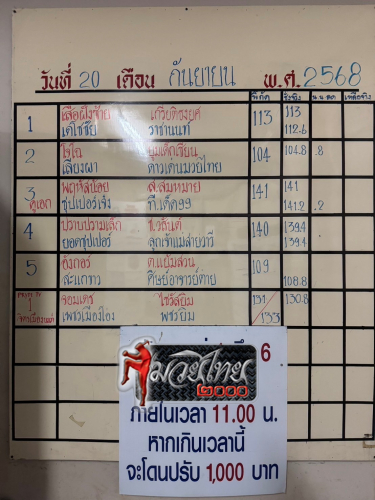 วันที่ 20 เดือน กันยายน พ.ศ. 2568
พิกัด ชั่งจริง น.น.ลด เหลือจริง
1 เสือผึ้งซ้าย เกริยติรงยศ 113 113
เดโชชัย ราชานนท์ 112.6
2 โจโฉ 104 104.8 .8
เสียงผา ดาวเด่นมวยไทย
3 พฤหัสน้อย ส.สมหมาย 141 141
คู่เอก ซุปเปอร์เจ๋ง ที.เด็ด99 141.2 .2
4 ปราบปรามเล็ก 140 139.4
ยอดซุปเปอร์ ลูกเจ้าแม่สายวารี 139.4
5 อังกอร์ ต.แย้มสวน 109
สะแกทาว ศิษย์อาจารย์ต่าย 108.8
1 จอมเดช ไชวัลยิม 131 130.8
เพชรเมืองโอง พชรยิม 133
6
มวยไทย
๒๐๐๐
ภายในเวลา 11.00 น.
หากเกินเวลานี้
จะโดนปรับ 1,000 บาท